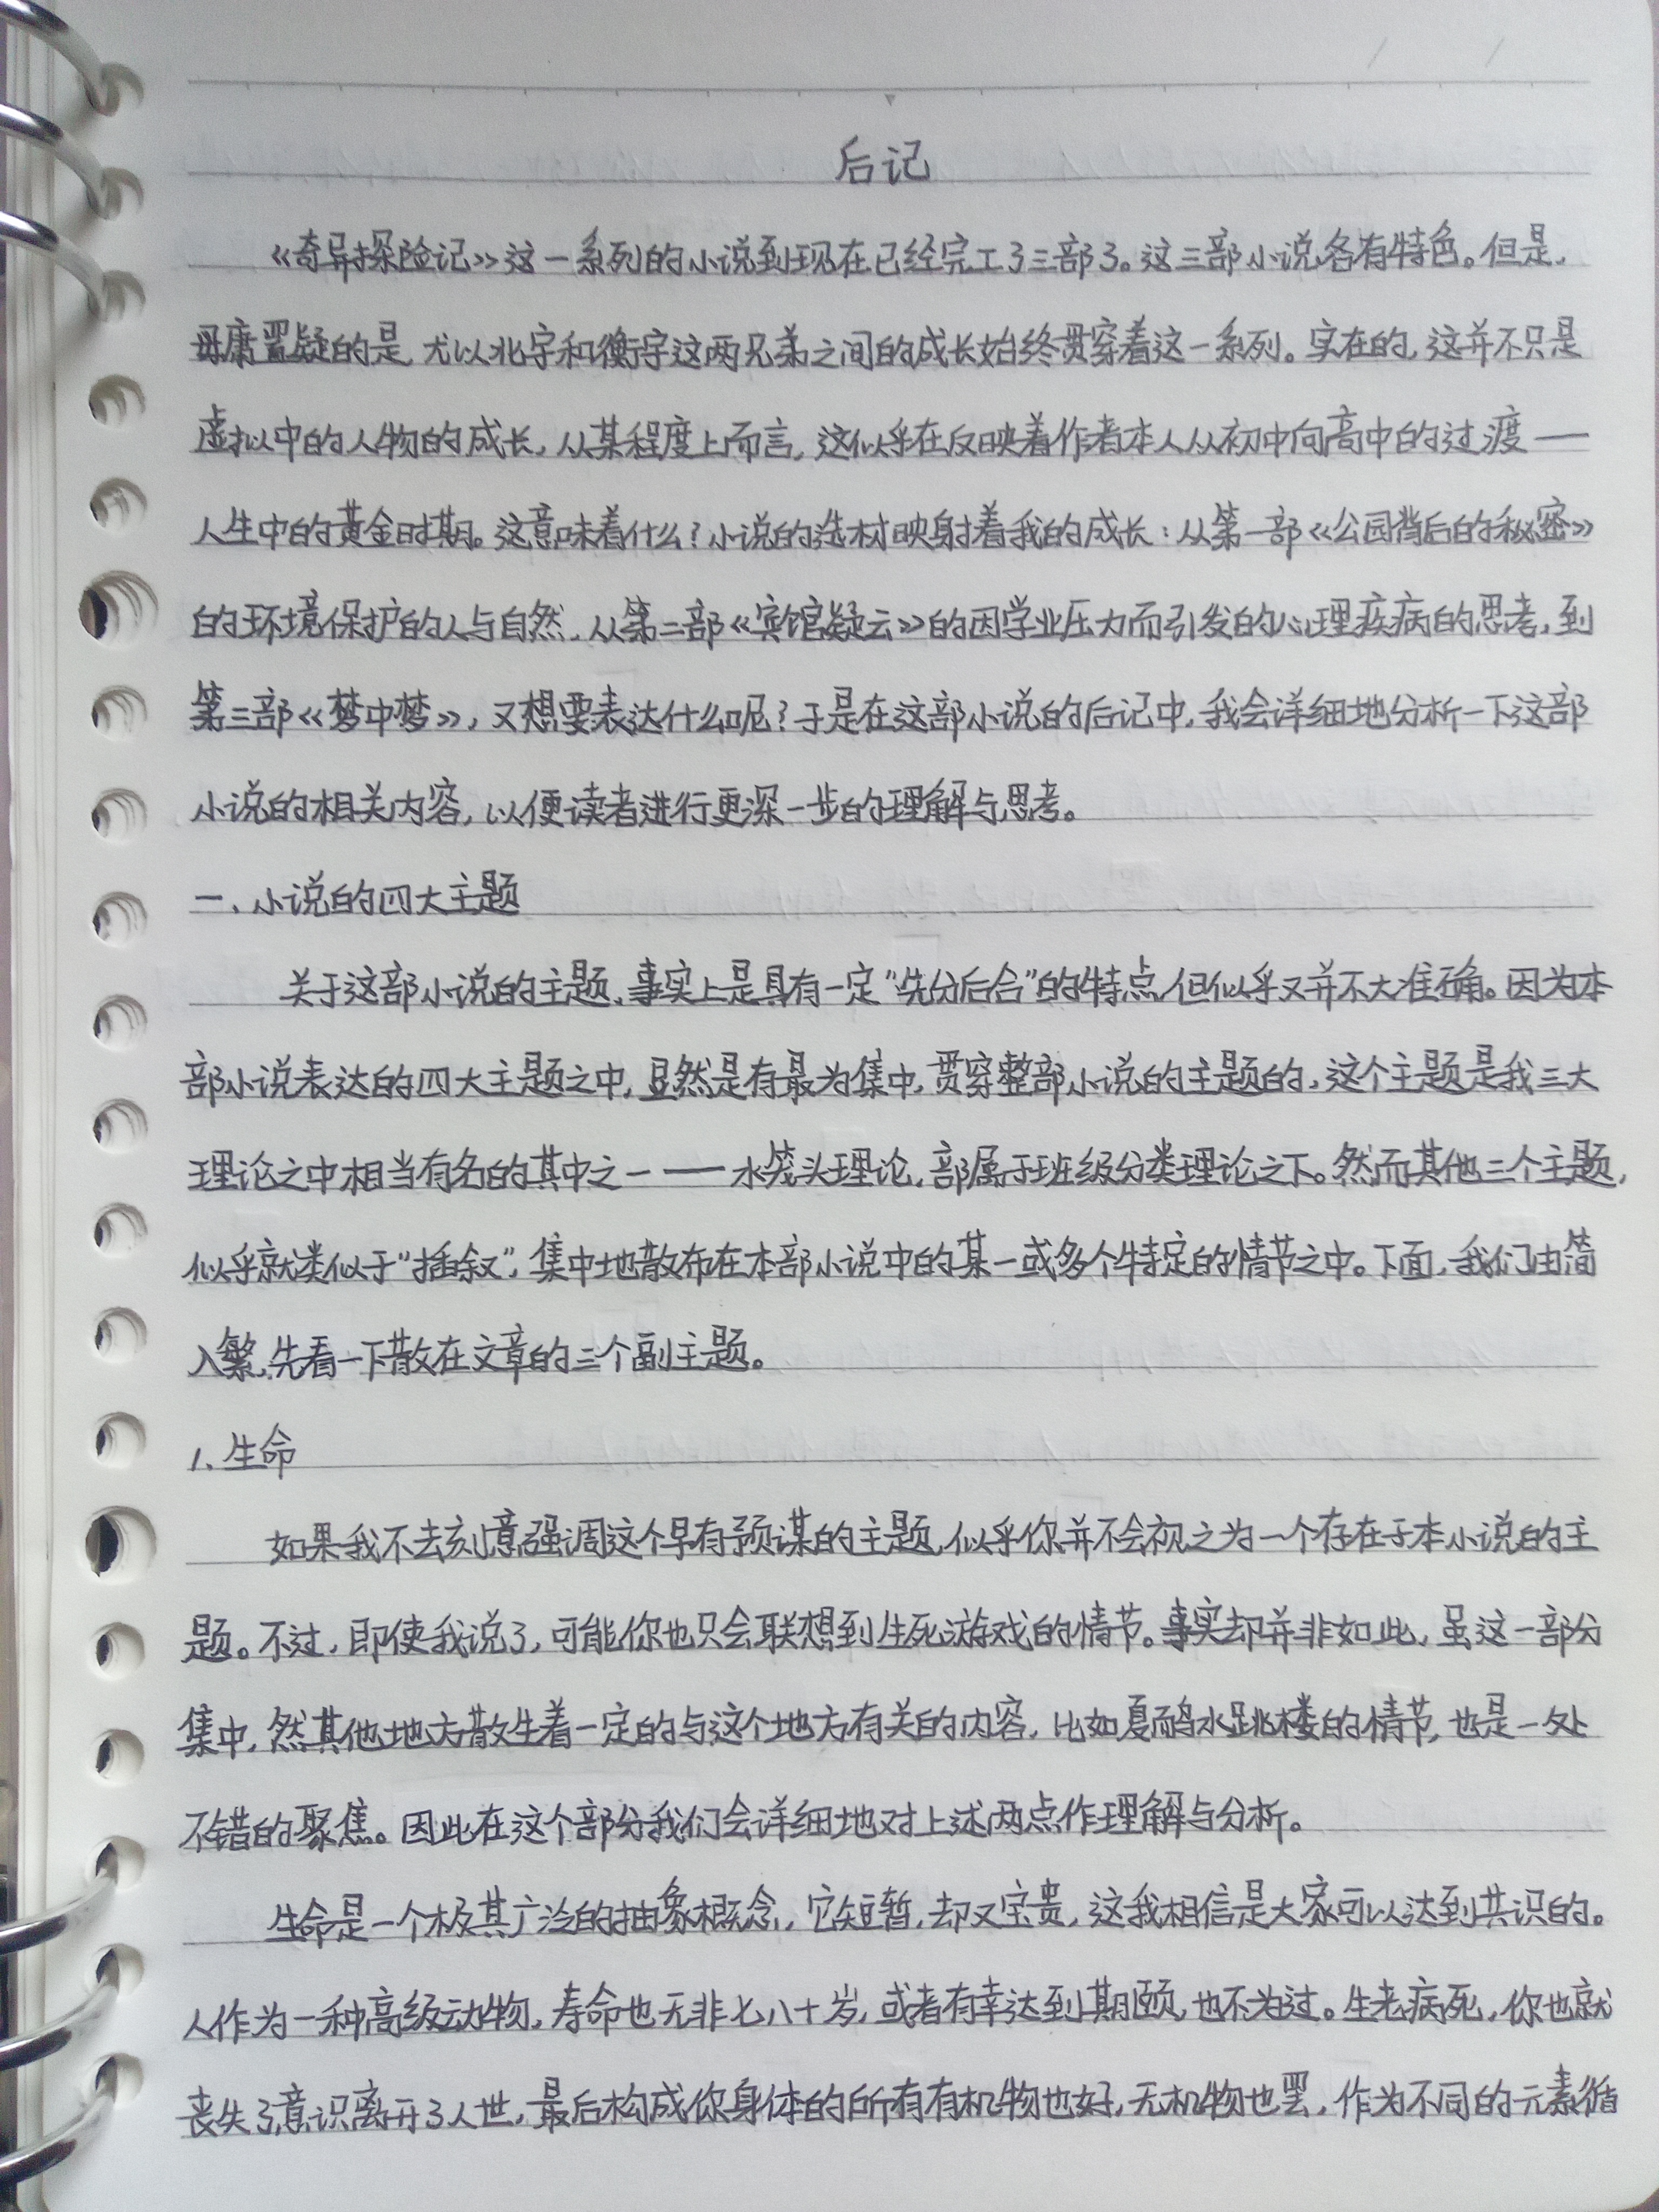 后记
《奇异探险记》这一系列的小说到现在已经完工了三部了。这三部小说各有特色。但是,
毋庸置疑的是,尤以北宇和衡宇这两兄弟之间的成长始终贯穿着这一系列。实在的,这并不只是
虚拟中的人物的成长,从某程度上而言,这似乎在反映着作者本人从初中向高中的过渡——
人生中的黄金时期。这意味着什么?小说的选材映射着我的成长:从第一部《公园背后的秘密》
的环境保护的人与自然,从第二部《宾馆疑云》的因学业压力而引发的心理疾病的思考,到
第三部《梦中梦》,又想要表达什么呢?于是在这部小说的后记中,我会详细地分析一下这部
小说的相关内容,以便读者进行更深一步的理解与思考。
一、小说的四大主题
关于这部小说的主题,事实上是具有一定“先分后合”的特点,但似乎又并不大准确。因为本
部小说表达的四大主题之中,显然是有最为集中,贯穿整部小说的主题的,这个主题是我三大
理论之中相当有名的其中之一——水笼头理论,部属于班级分类理论之下。然而其他三个主题,
似乎就类似于“插叙”,集中地散布在本部小说中的某一或多个特定的情节之中。下面,我们由简
入繁,先看一下散在文章的三个副主题。
1、生命
如果我不去刻意强调这个早有预谋的主题,似乎你并不会视之为一个存在于本小说的主
题。不过,即使我说了,可能你也只会联想到生死游戏的情节。事实却并非如此,虽这一部分
集中,然其他地方散生着一定的与这个地方有关的内容,比如夏水跳楼的情节,也是一处
不错的聚焦。因此在这个部分我们会详细地对上述两点作理解与分析。
生命是一个极其广泛的抽象概念,它短暂,却又宝贵,这我相信是大家可以达到共识的。
人作为一种高级动物,寿命也无非七八十岁,或者有幸达到期颐,也不为过。生老病死,你也就
丧失了意识离开了人世,最后构成你身体的所有有机物也好,无机物也罢,作为不同的元素循